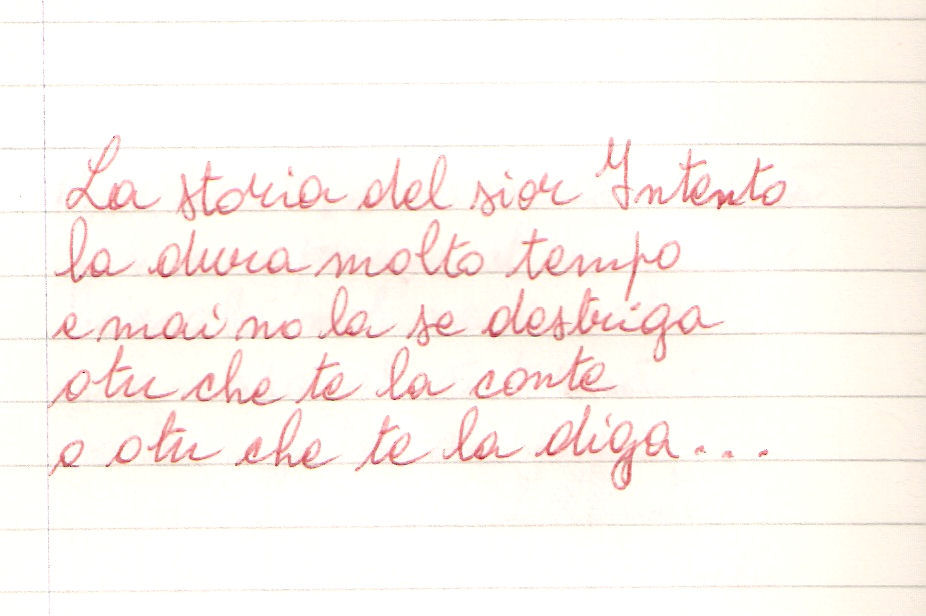 La storia del sior Intento
la dura molto tempo
e mai no la se destriga
otu che te la conte
o otu che te la diga...